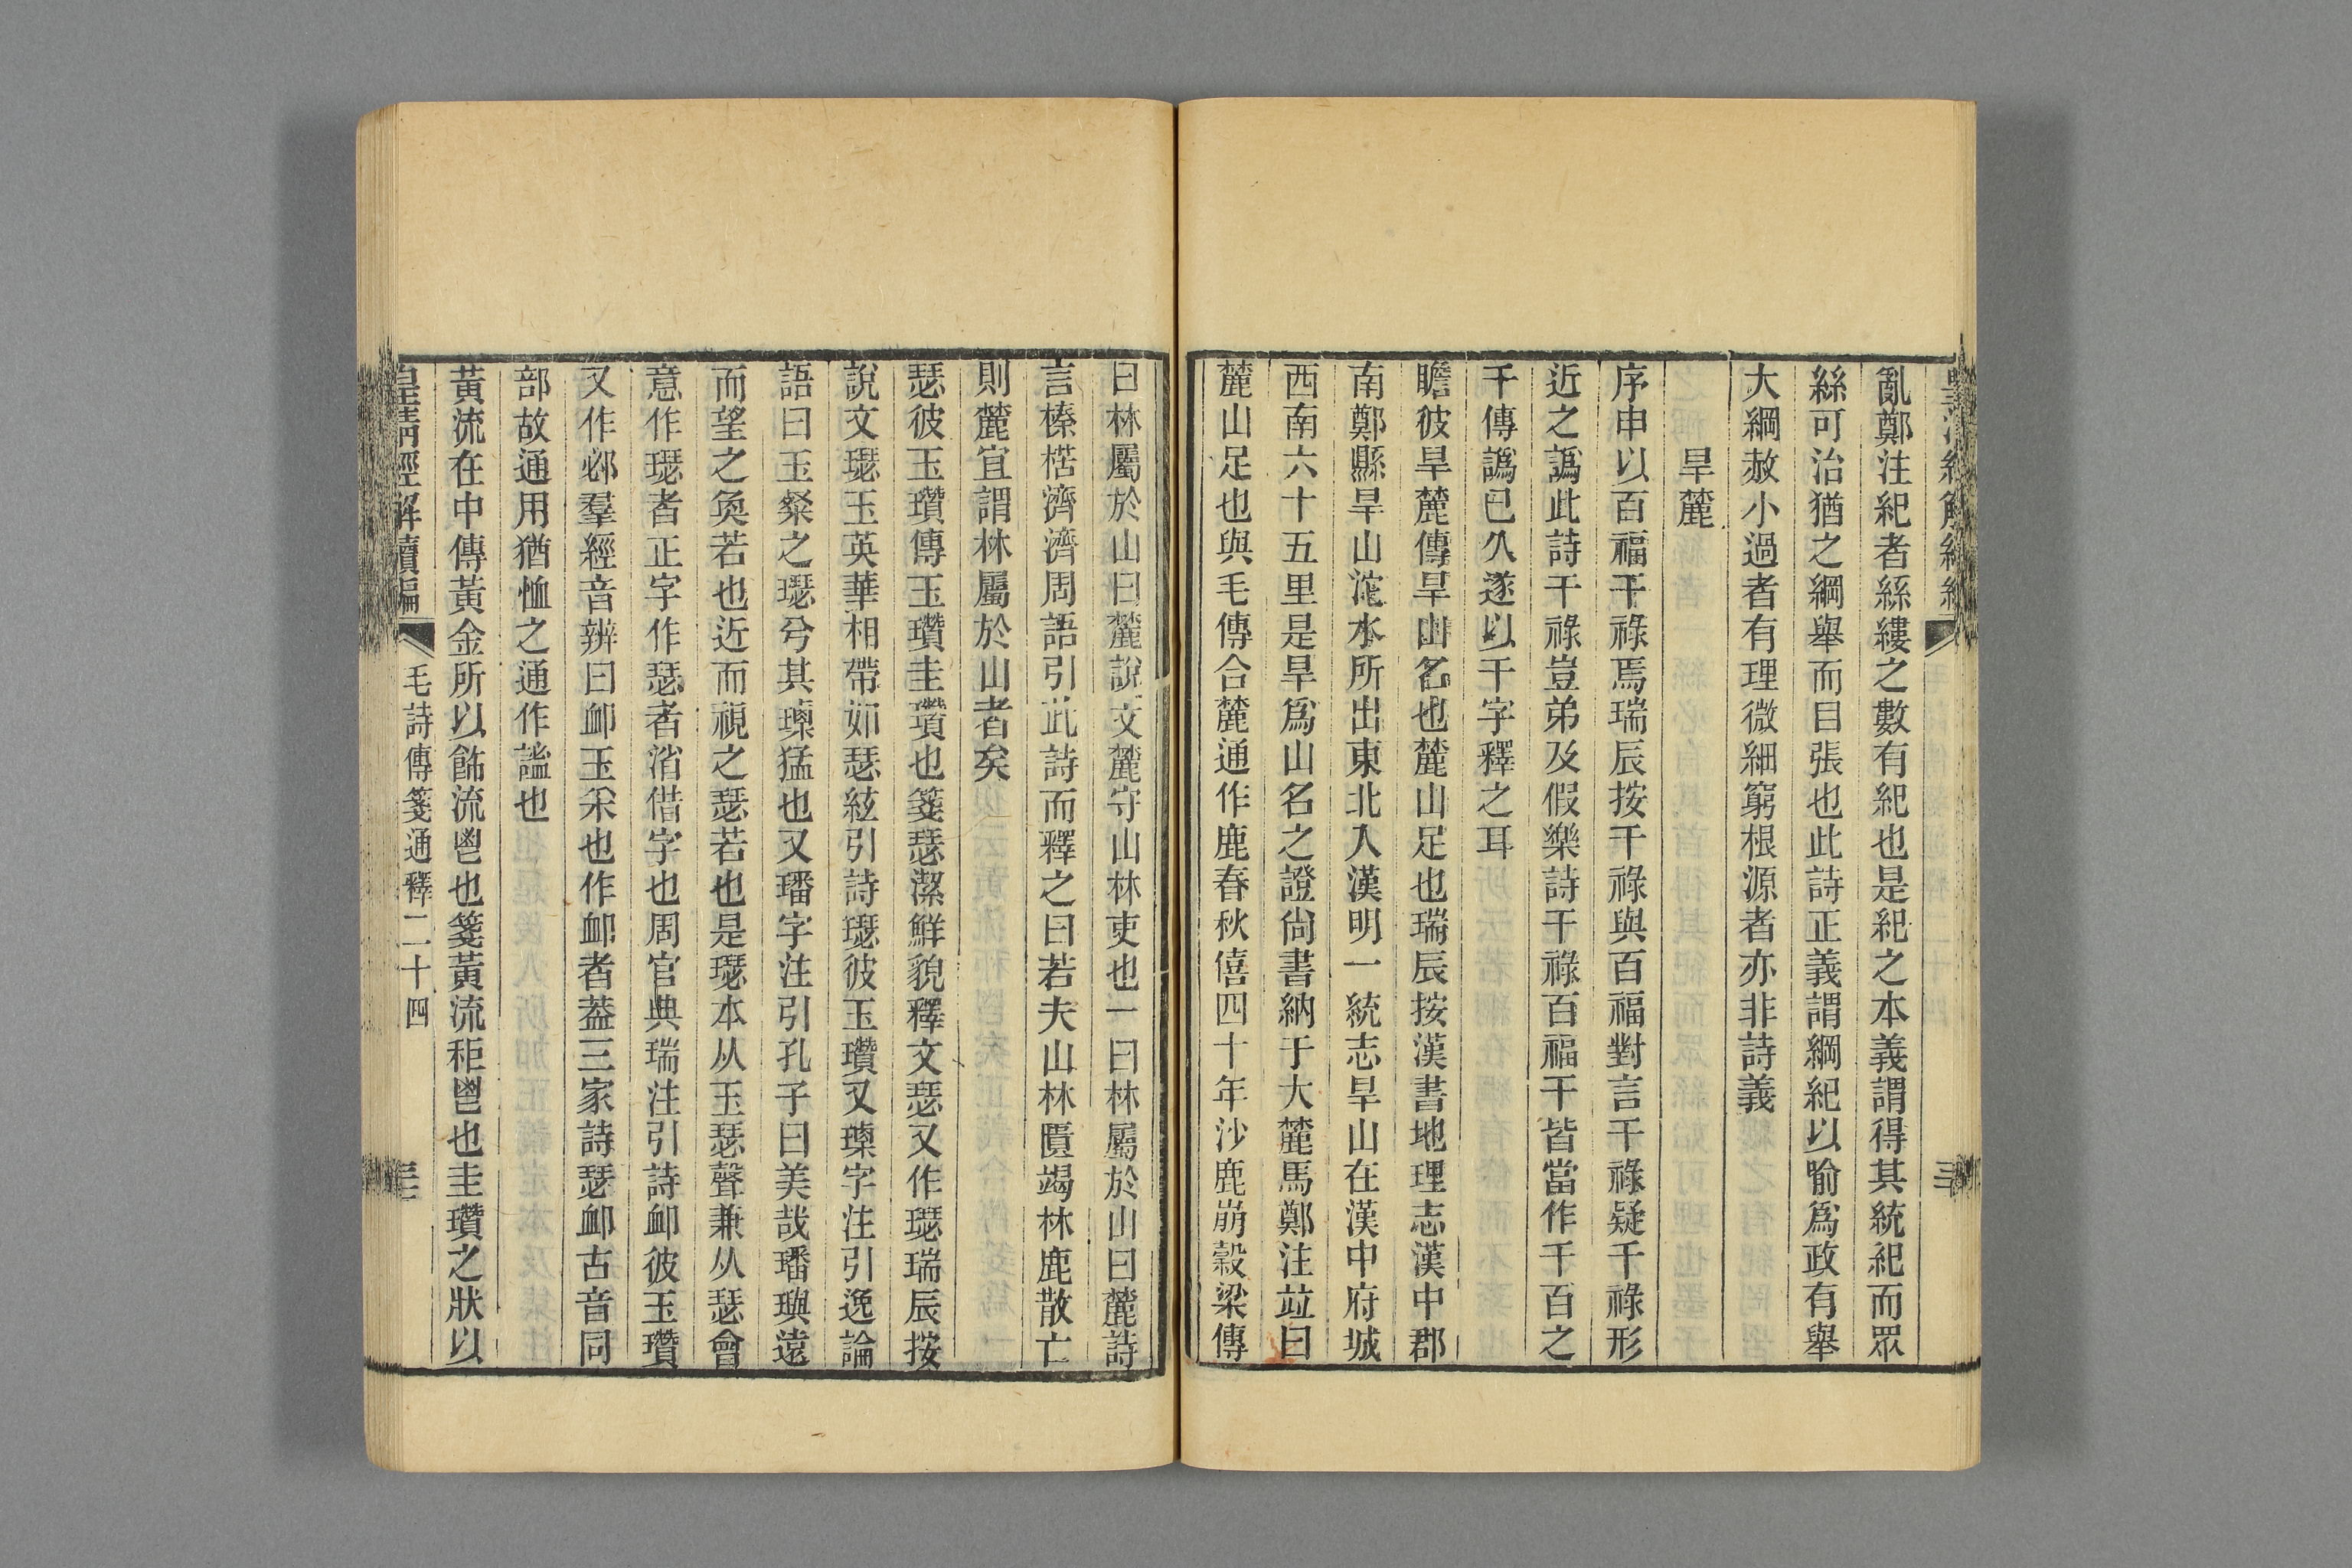 亂鄭注紀者絲縷之數有紀也是紀之本義謂得其統紀而眾
絲可治猶之綱舉而目張也此詩正義謂綱紀以喻爲政有舉
大綱赦小過者有理微細窮根源者亦非詩義
旱麓
序申以百福干祿焉瑞辰按干祿與百福對言干祿疑千祿形
近之譌此詩干祿豈弟及假樂詩干祿百福干皆當作千百之
千傳譌已久遂以干字釋之耳
瞻彼旱麓傳旱山名也麓山足也瑞辰按漢書地理志漢中郡
南鄭縣旱山沱水所出東北入漢明一統志旱山在漢中府城
西南六十五里是旱爲山名之證尙書納于大麓馬鄭注竝曰
麓山足也與毛傳合麓通作鹿春秋僖四十年沙鹿崩穀梁傳
曰林屬於山曰麓說文麓守山林吏也一曰林屬於山曰麓詩
言榛楛濟濟周語引此詩而釋之曰若夫山林匱竭林鹿散亡
則麓宜謂林屬於山者矣
瑟彼玉瓚傳玉瓚圭瓚也箋瑟潔鮮貌釋文瑟又作璱瑞辰按
說文璱玉英華相帶如瑟絃引詩璱彼玉瓚又瑮字注引逸論
語曰玉粲之璱兮其瑮猛也又璠字注引孔子曰美哉璠璵遠
而望之奐若也近而視之瑟若也是璱本从玉瑟聲兼从瑟會
意作璱者正字作瑟者渻借字也周官典瑞注引詩卹彼玉瓚
又作䘏羣經音辨曰卹玉采也作卹者葢三家詩瑟卹古音同
部故通用猶恤之通作謐也
黃流在中傳黃金所以飾流鬯也箋黃流秬鬯也圭瓚之狀以
皇淸經解續編
毛詩傳箋通釋二十四